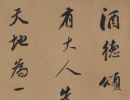 酒德頌
有大人先
天地為一